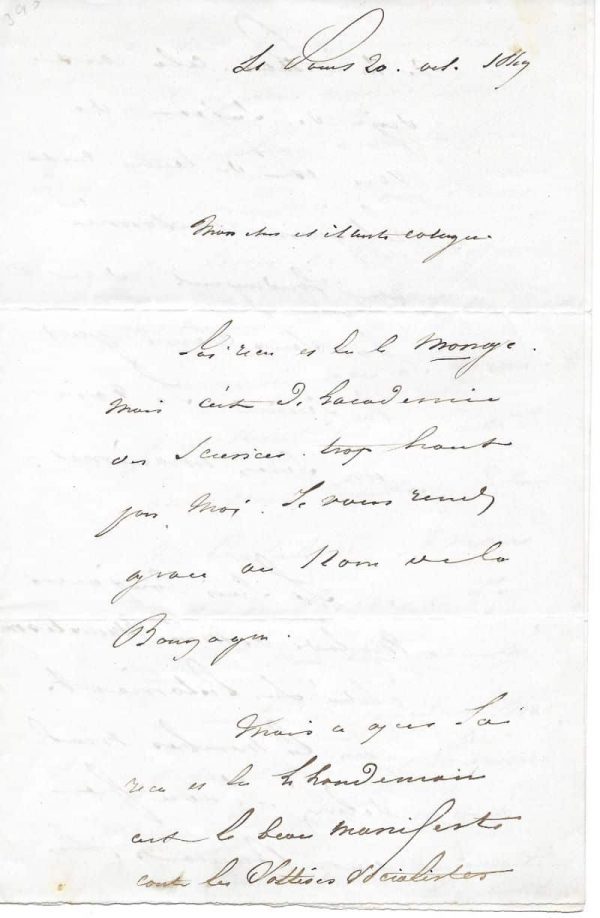 Paris 20. oct. 1849
Mon cher et illustre collegue
J'ai recu et lu le Monge.
mais c'est de l'academie
des Sciences. trop haut
pour Moi. Je vous rends
grace au Nom de la
Bourgogne.
Mais ce que J'ai
recu et lu le lendemain
c'est le beau manifeste
contre les Sottises Socialistes